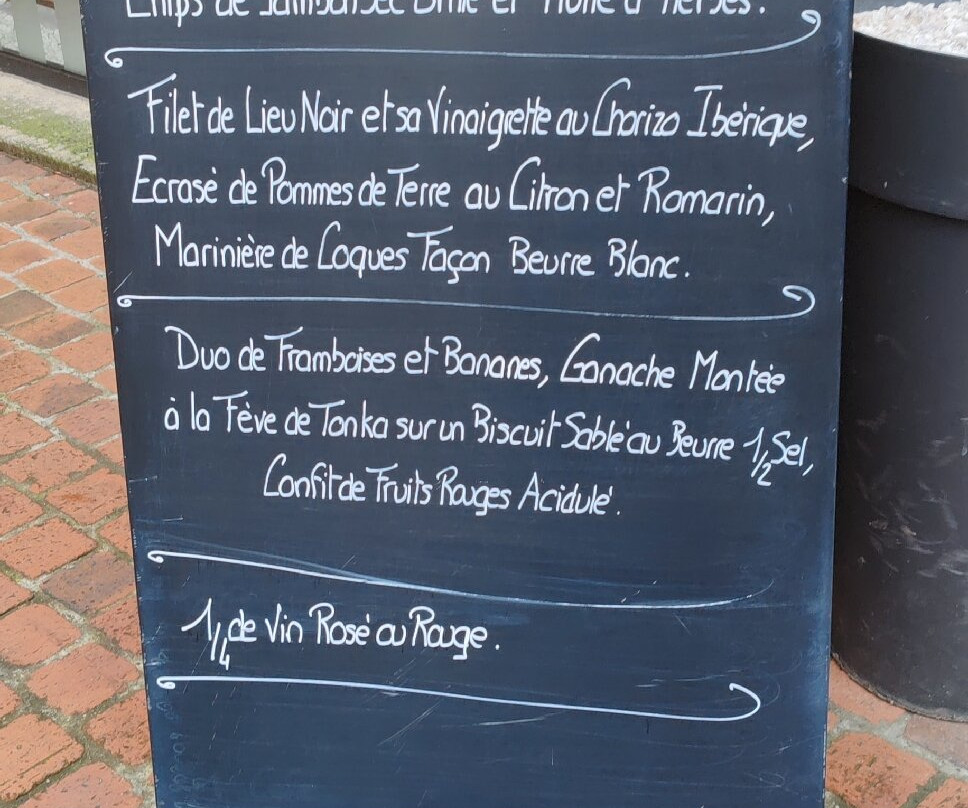 Chips de Jambon Sec Brulé et Huile d'Herbes.
Filet de Lieu Noir et sa Vinaigrette au Chorizo Ibérique,
Ecrasé de Pommes de Terre au Citron et Romarin,
Marinière de Coques Façon Beurre Blanc.
Duo de Framboises et Bananes, Ganache Montée
à la Fève de Tonka sur un Biscuit Sablé au Beurre 1/2 Sel,
Confit de Fruits Rouges Acidulé.
1/4 de Vin Rosé ou Rouge.